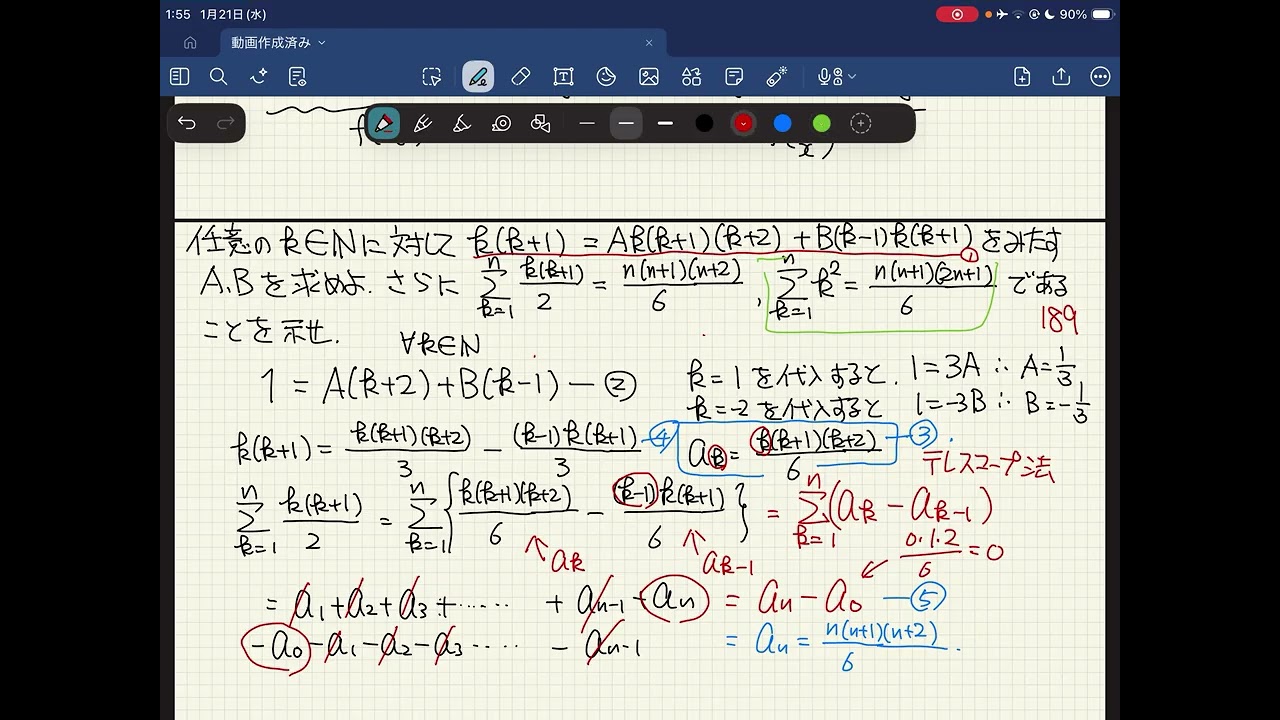 1:55 1月21日(水) 90%
動画作成済み
任意の k∈N に対して k(k+1) = Ak(k+1)(k+2) + B(k-1)k(k+1) をみたす ①
A,B を求めよ. さらに \sum_{k=1}^{n} \frac{k(k+1)}{2} = \frac{n(n+1)(n+2)}{6}, \sum_{k=1}^{n} k^2 = \frac{n(n+1)(2n+1)}{6} である
ことを示せ. 189
∀k∈N
1 = A(k+2) + B(k-1) — ②
k=1 を代入すると, 1=3A ∴ A=\frac{1}{3}
k=-2 を代入すると 1=-3B ∴ B=-\frac{1}{3}
k(k+1) = \frac{k(k+1)(k+2)}{3} - \frac{(k-1)k(k+1)}{3} — ④ a_k = \frac{k(k+1)(k+2)}{6} — ③.
テレスコープ法
\sum_{k=1}^{n} \frac{k(k+1)}{2} = \sum_{k=1}^{n} \{ \frac{k(k+1)(k+2)}{6} - \frac{(k-1)k(k+1)}{6} \} = \sum_{k=1}^{n} (a_k - a_{k-1})
↖ a_k ↖ a_{k-1} ↙ \frac{0.1.2}{6} = 0
= a_1 + a_2 + a_3 + …… + a_{n-1} + a_n = a_n - a_0 — ⑤
- a_0 - a_1 - a_2 - a_3 …… - a_{n-1} = a_n = \frac{n(n+1)(n+2)}{6}.